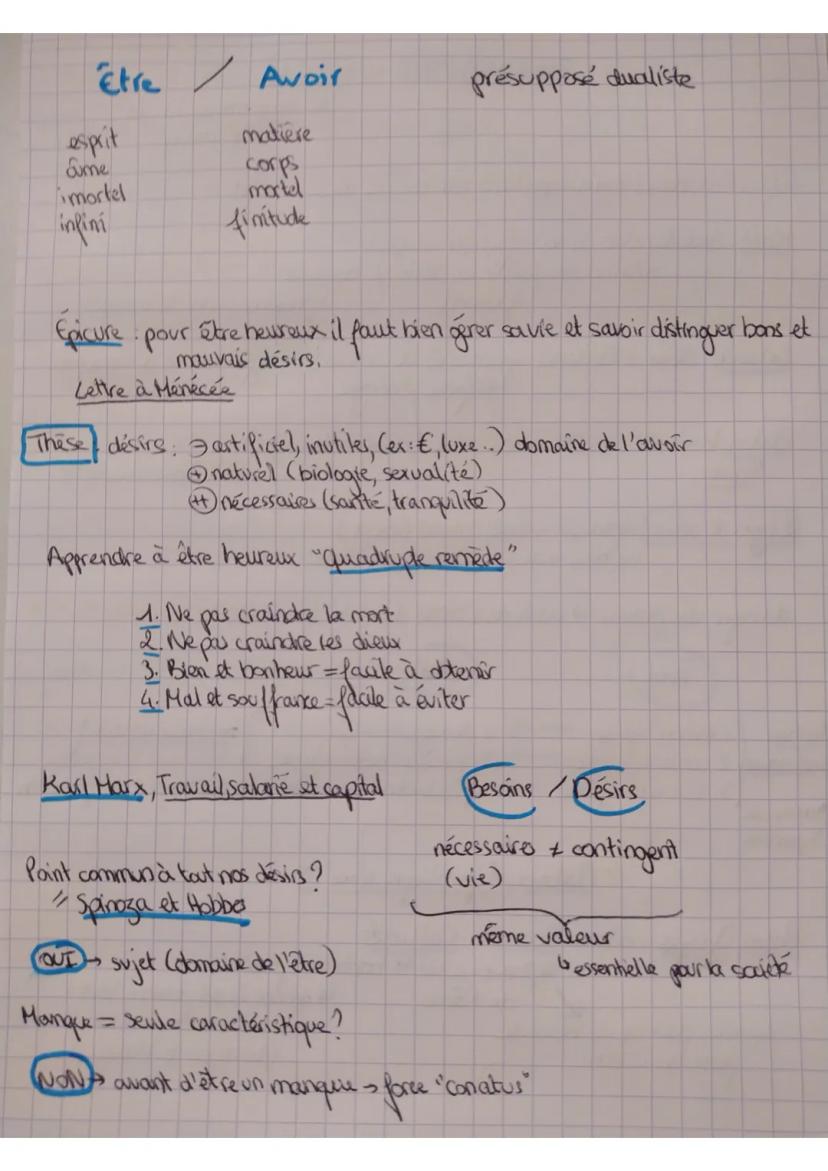 Être / Avoir présupposé dualiste
esprit matière
âme corps
imortel mortel
infini finitude
Épicure : pour être heureux il faut bien gérer sa vie et savoir distinguer bons et
mauvais désirs.
Lettre à Ménécée
Thèse désirs : ⊖ artificiel, inutiles, (ex: €, luxe..) domaine de l'avoir
⊕ naturel (biologie, sexualité)
(++) nécessaires (santé, tranquilité)
Apprendre à être heureux "quadruple remède"
1. Ne pas craindre la mort
2. Ne pas craindre les dieux
3. Bien et bonheur = facile à obtenir
4. Mal et souffrance = facile à éviter
Karl Marx, Travail, salarié et capital Besoins / Désirs
nécessaires ≠ contingent
(vie)
Point commun à tout nos désirs ?
Spinoza et Hobbes
même valeur
↳ essentielle pour la société
OUI → sujet (domaine de l'être)
Manque = seule caractéristique ?
NON → avant d'être un manque → force "conatus"